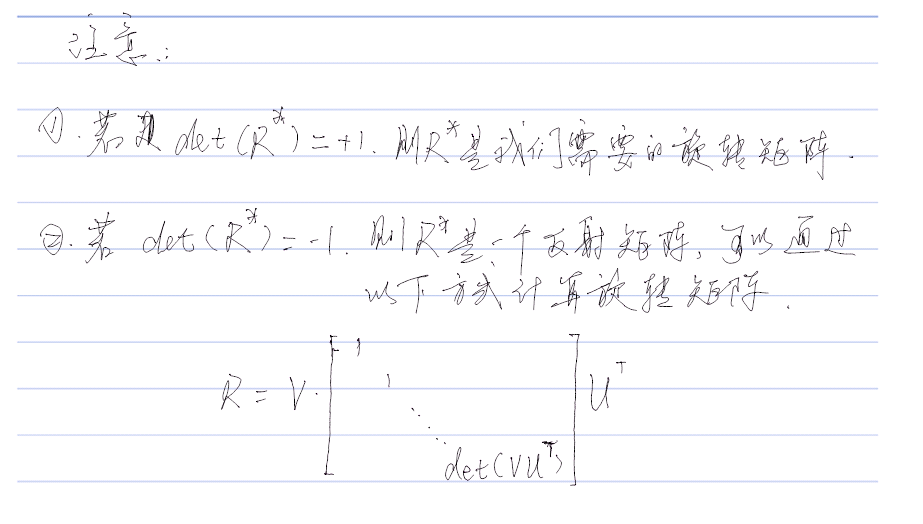 注意:
①. 若 det(R*)=+1. 则R*是我们需要的旋转矩阵.
②. 若 det(R*)=-1. 则R*是一个反射矩阵, 可以通过
以下方式计算旋转矩阵.
R = V · [ 1 1 ⋱ det(VUᵀ) ] Uᵀ